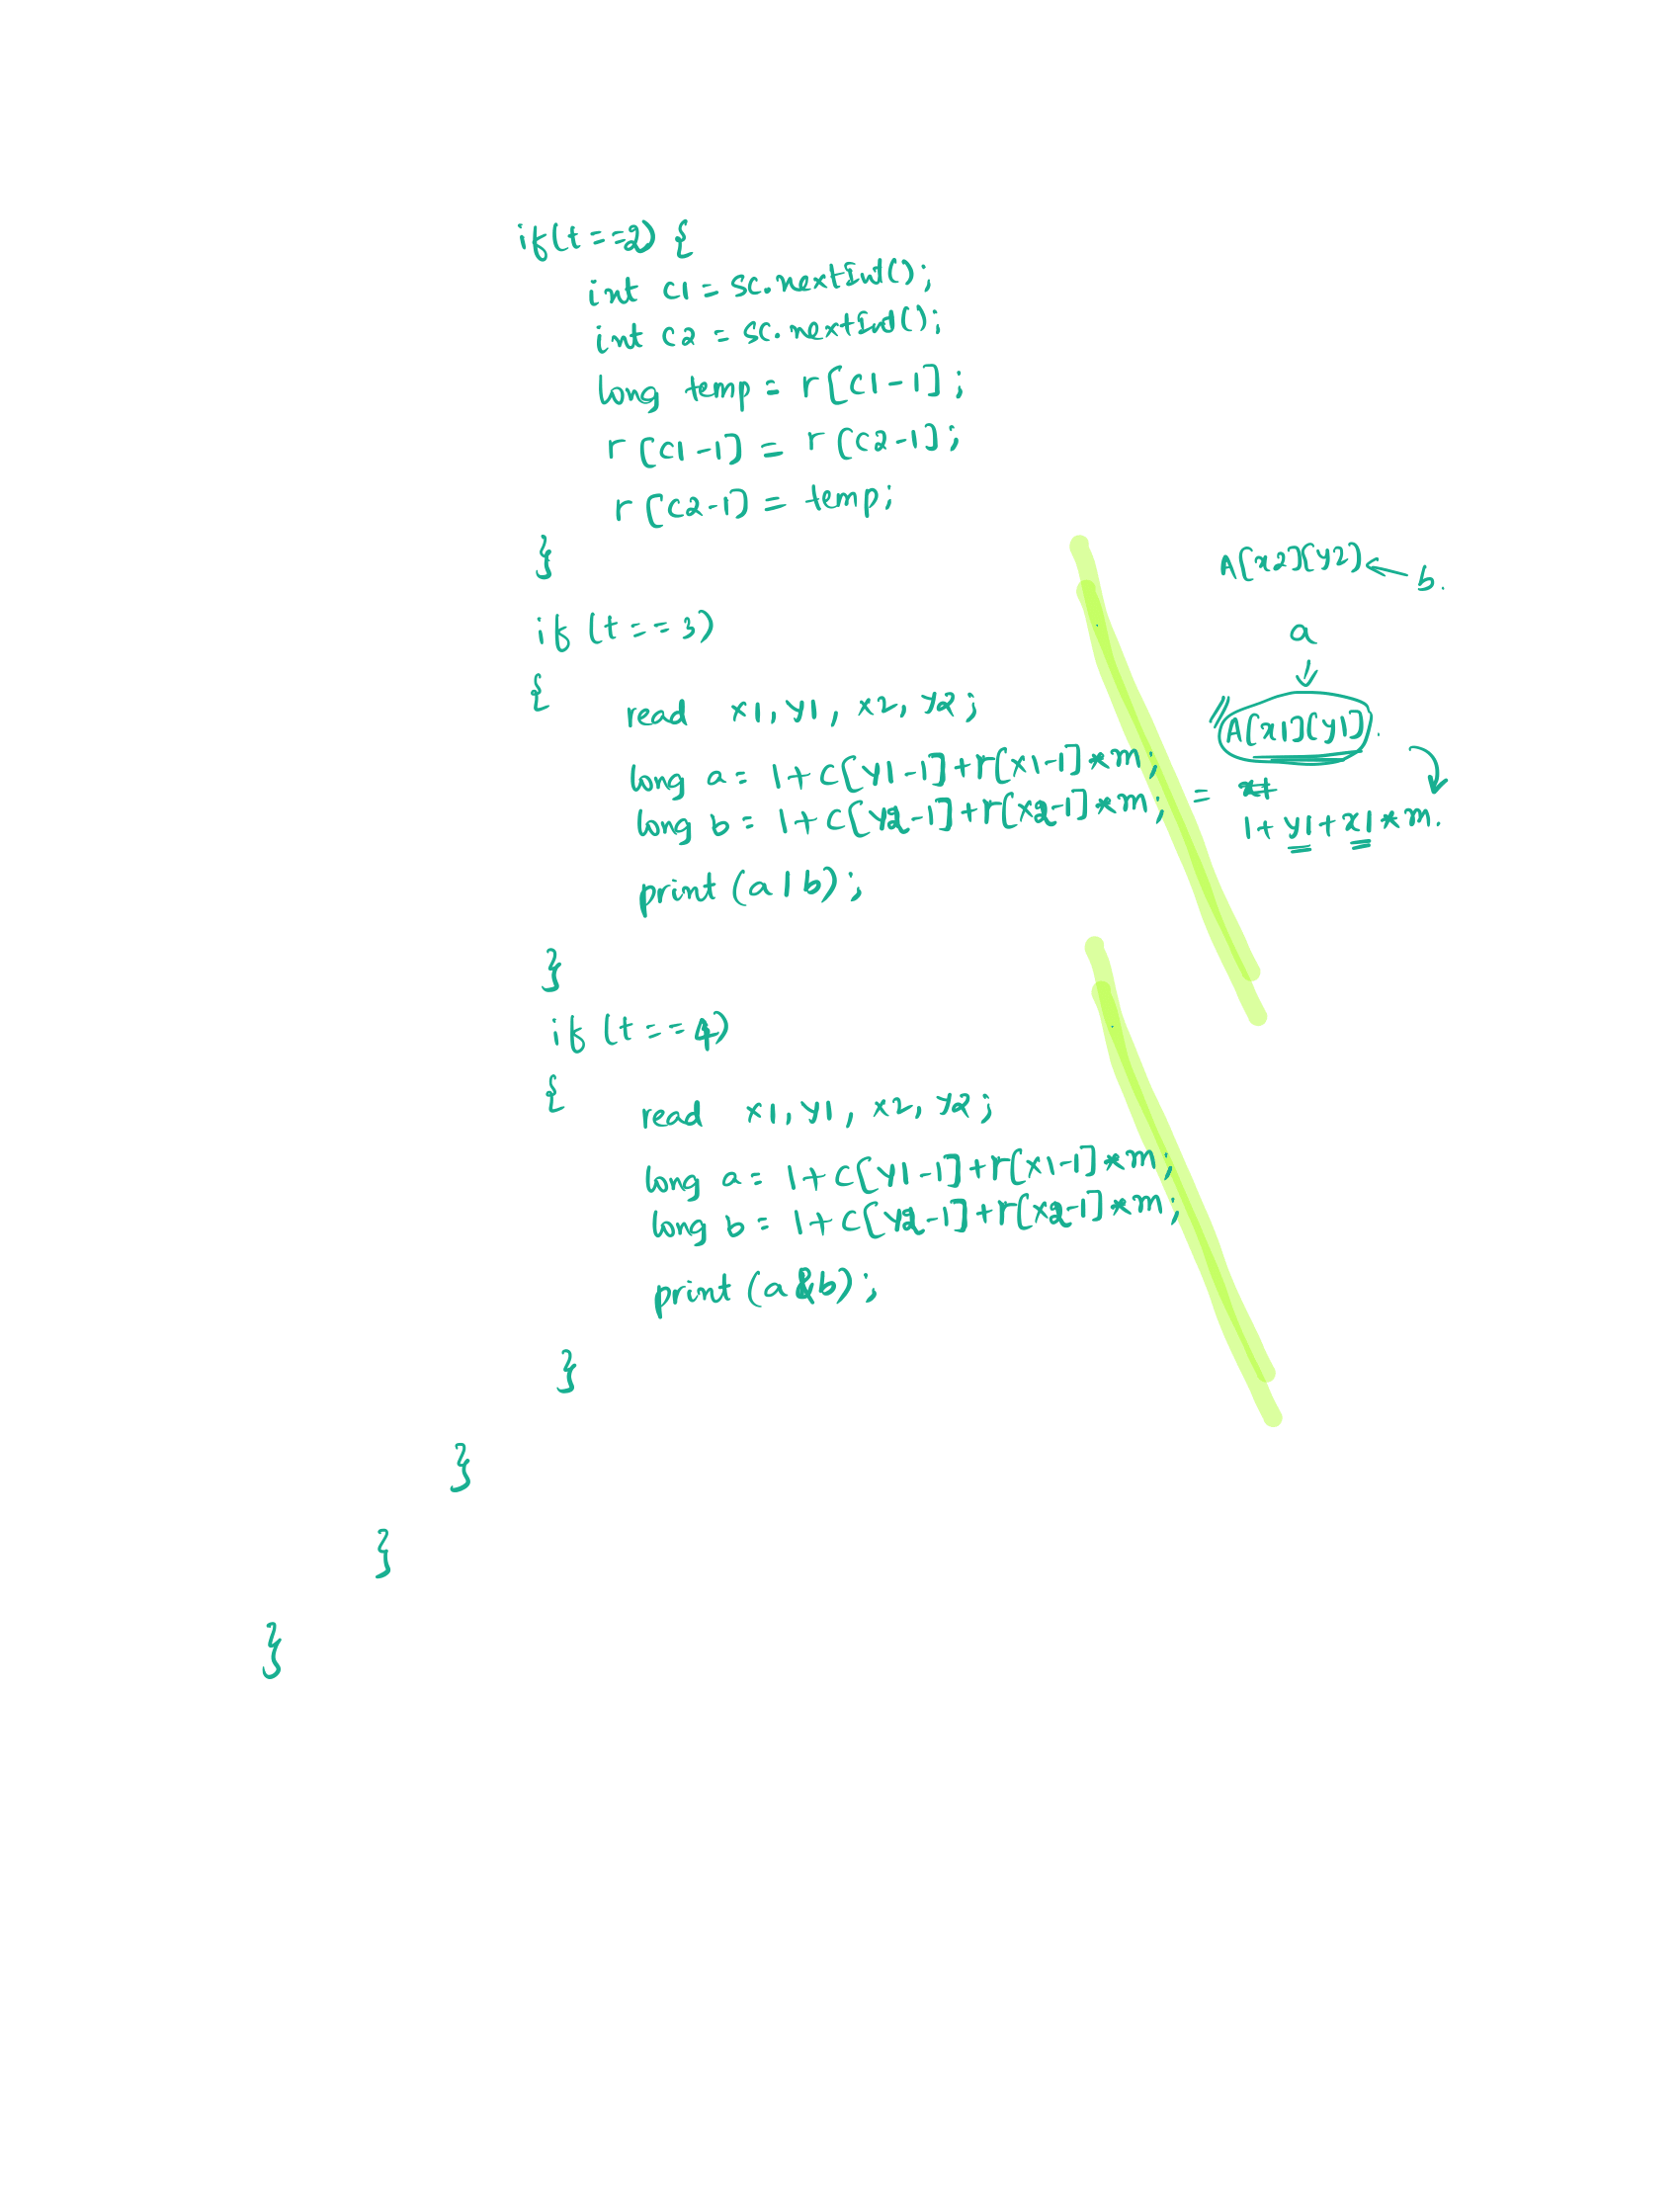 if(t==2) {
int c1 = sc.nextInt();
int c2 = sc.nextInt();
long temp = r[c1-1];
r[c1-1] = r[c2-1];
r[c2-1] = temp;
}
A[x2][y2] ← b.
if (t==3)
a
↓
{
read x1, y1, x2, y2;
A[x1][y1].
long a = 1+c[y1-1]+r[x1-1]*m;
long b = 1+c[y2-1]+r[x2-1]*m;
=
1+y1+x1*m.
print (a|b);
}
if (t==4)
{
read x1, y1, x2, y2;
long a = 1+c[y1-1]+r[x1-1]*m;
long b = 1+c[y2-1]+r[x2-1]*m;
print (a&b);
}
}
}
}